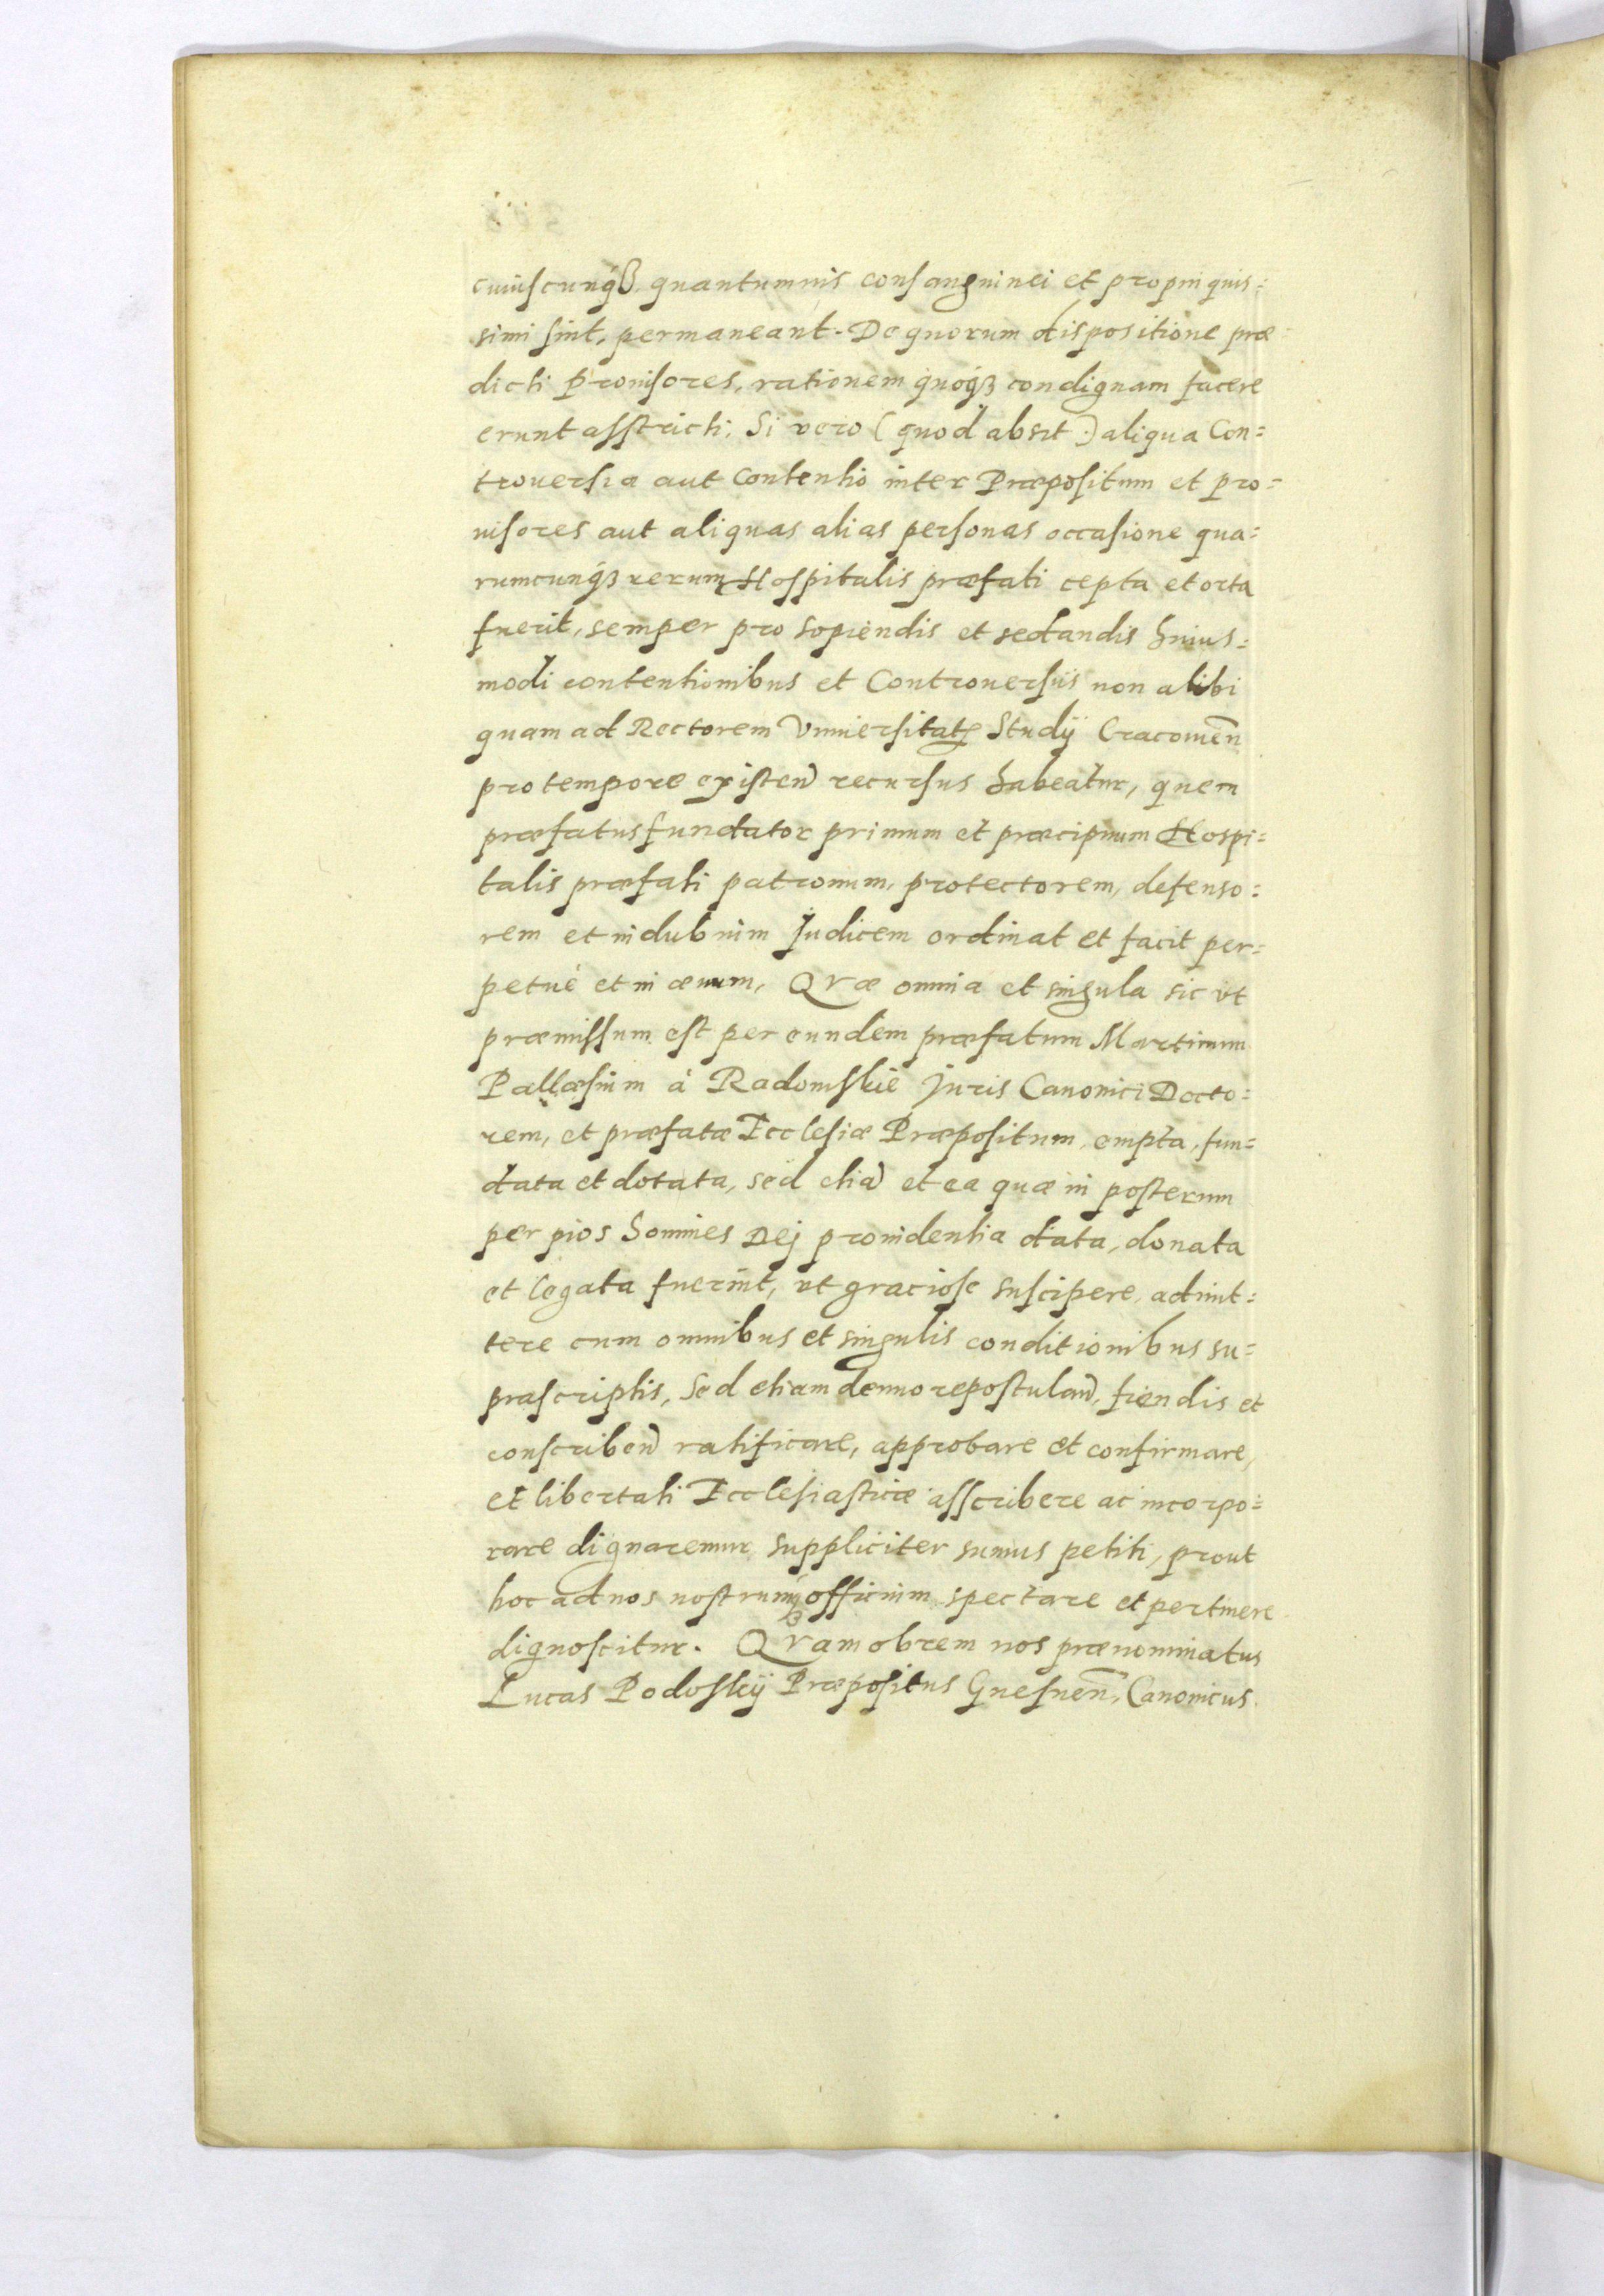 cuiuscunqȝ quantumuis consanguinei et propinquis=
simi sint, permaneant. De quorum dispositione præ
dicti prouisores, rationem quoqȝ condignam facere
erunt asstricti. Si vero (quod absit.) aliqua Con=
trouersia aut contentio inter Præpositum et pro=
uisores aut aliquas alias personas occasione qua=
rumcunqȝ rerum Hospitalis præfati cepta et orta
fuerit, semper pro sopiendis et sedandis huius=
modi contentionibus et Controuersiis non alibi
quam ad Rectorem Vniuersitatꝭ Studij Cracouien̄
pro tempore existen̄ recursus habeatur, quem
præfatus fundator primum et præcipuum Hospi=
talis præfati patronum, protectorem, defenso=
rem et indubium Iudicem ordinat et facit per=
petuè et in æuum, Qvæ omnia et singula sic vt
præmissum est per eundem præfatum Martinum
Pallæsium à Radomskie Juris Canonici Docto=
rem, et præfatæ Ecclesiæ Præpositum, empta, fun=
data et dotata, sed etiā et ea quæ in posterum
per pios homines Dej prouidentia data, donata
et legata fuerint, vt graciose suscipere, admit=
tere cum omnibus et singulis conditionibus su=
prascriptis, sed etiam denuo repostulan̄, fiendis et
conscriben̄ ratificare, approbare et confirmare,
et libertati Ecclesiasticæ asscribere ac incorpo=
rare dignaremur suppliciter sumus petiti, prout
hoc ad nos nostrumqȝ officium spectare et pertinere
dignoscitur. Qvamobrem nos prænominatus
Lucas Podoskij Præpositus Gnesnen̄, Canonicus.